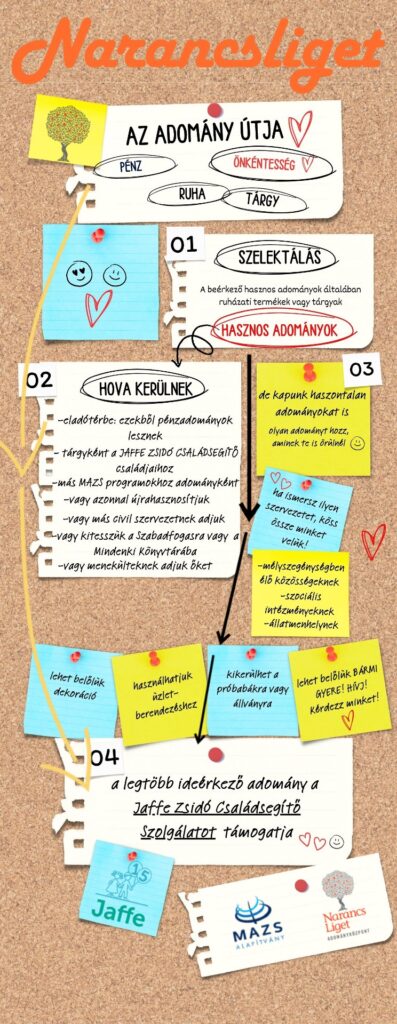 Narancsliget
AZ ADOMÁNY ÚTJA
PÉNZ
ÖNKÉNTESSÉG
RUHA
TÁRGY
01
SZELEKTÁLÁS
A beérkező hasznos adományok általában
ruházati termékek vagy tárgyak
HASZNOS ADOMÁNYOK
02
HOVA KERÜLNEK
-eladótérbe: ezekből pénzadományok
lesznek
- tárgyként a JAFFE ZSIDÓ CSALÁDSEGÍTŐ
családjaihoz
-más MAZS programokhoz adományként
-vagy azonnal újrahasznosítjuk
-vagy más civil szervezetnek adjuk
-vagy kitesszük a Szabadfogasra vagy a
Mindenki Könyvtárába
-vagy menekülteknek adjuk őket
03
de kapunk haszontalan
adományokat is
olyan adományt hozz,
aminek te is örülnél
ha ismersz ilyen
szervezetet, köss
össze minket
velük!
-mélyszegénységben
élő közösségeknek
-szociális
intézményeknek
-állatmenhelynek
lehet belőlük
dekoráció
használhatjuk
üzlet-
berendezéshez
kikerülhet a
próbabákra vagy
állványra
lehet belőlük BÁRMI
GYERE! HÍVJ!
Kérdezz minket!
04
a legtöbb ideérkező adomány a
Jaffe Zsidó Családsegítő
Szolgálatot támogatja
15
Jaffe
MAZS
ALAPÍTVÁNY
Narancs
Liget
ADOMÁNYKÖZPONT